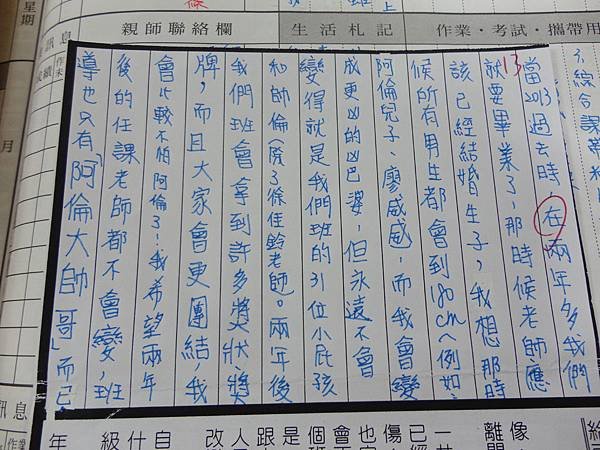 親師聯絡欄
生活札記
作業・考試・攜帶用
星期
訊息
月
13
當2013過去時,在兩年多我們
就要畢業了,那時候老師應
該已經結婚生子,我想那時
候所有男生都會到180cm(例如:
阿倫兒子、廖威威,而我會變
成更凶的凶巴婆,但永遠不會
變得就是我們班的31位小屁孩
和帥倫(廢了徐佳鈴老師)。兩年後
我們班會拿到許多獎狀、獎
牌,而且大家會更團結,我
會比較不怕阿倫了!我希望兩年
後的任課老師都不會變,班
導也只有「阿倫大帥哥」而已
訊息